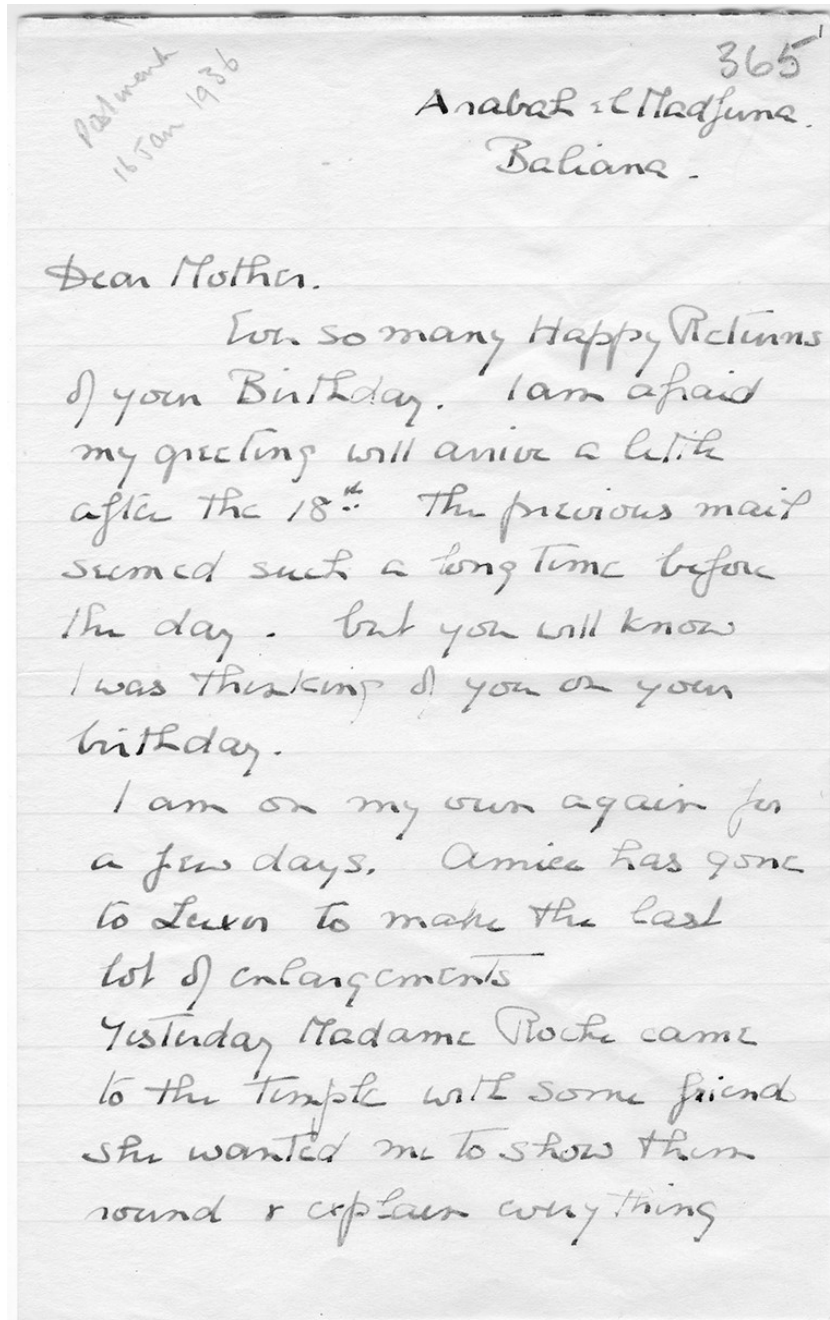 Postmark
16 Jan 1936
365
Arabah el Madfuna.
Baliana.
Dear Mother.
Ever so many Happy Returns
of your Birthday. I am afraid
my greeting will arrive a little
after the 18th. The previous mail
seemed such a long time before
the day. but you will know
I was thinking of you on your
birthday.
I am on my own again for
a few days. Amice has gone
to Luxor to make the last
lot of enlargements
Yesterday Madame Roche came
to the temple with some friend
she wanted me to show them
round & explain everything